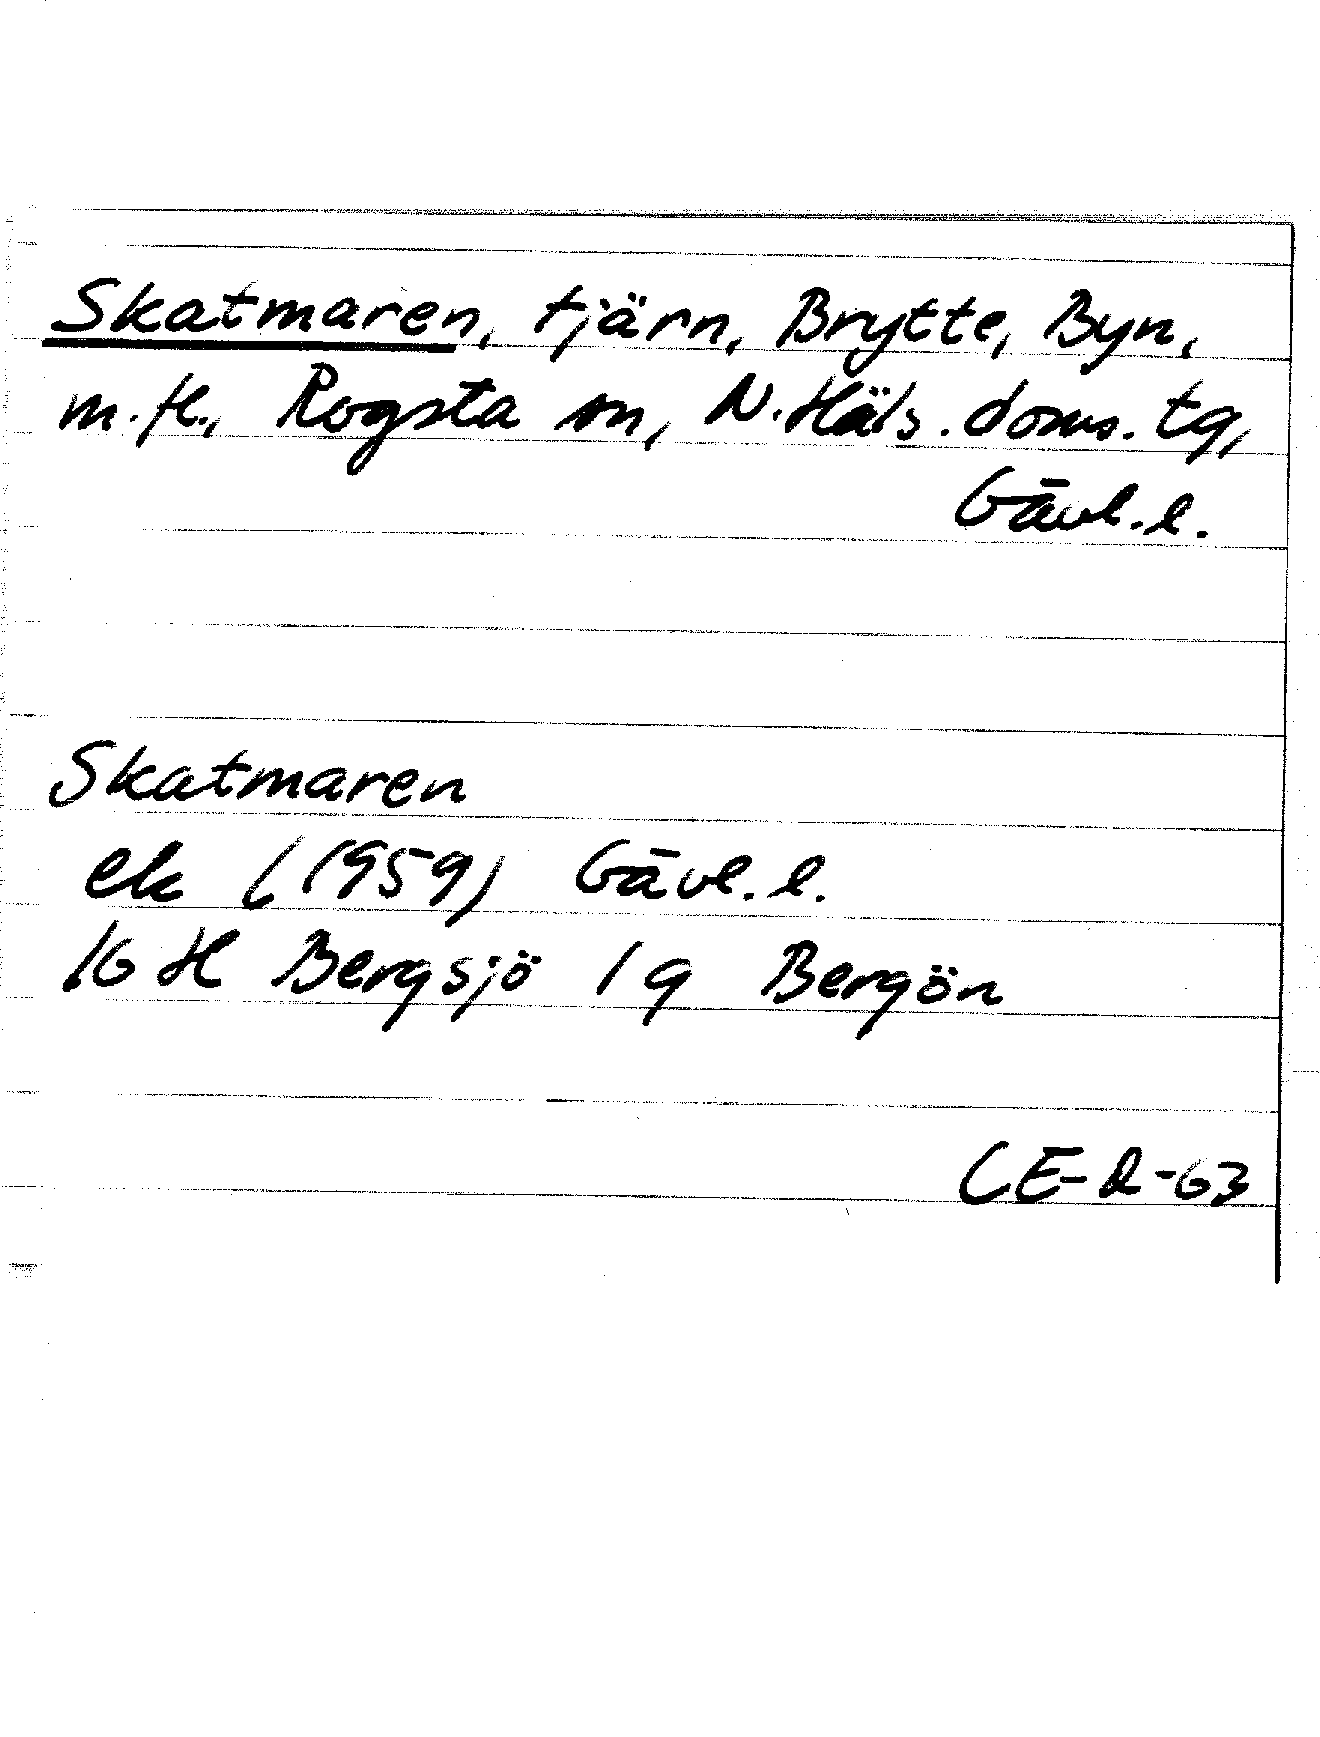 Skatmaren, tjärn, Brytte, Byn,
m.fl., Rogsta sn, N.Häls.doms.tg,
Gävl.l.
Skatmaren
ek (1959) Gävl.l.
16 H Bergsjö 1g Bergön
CE-R-63